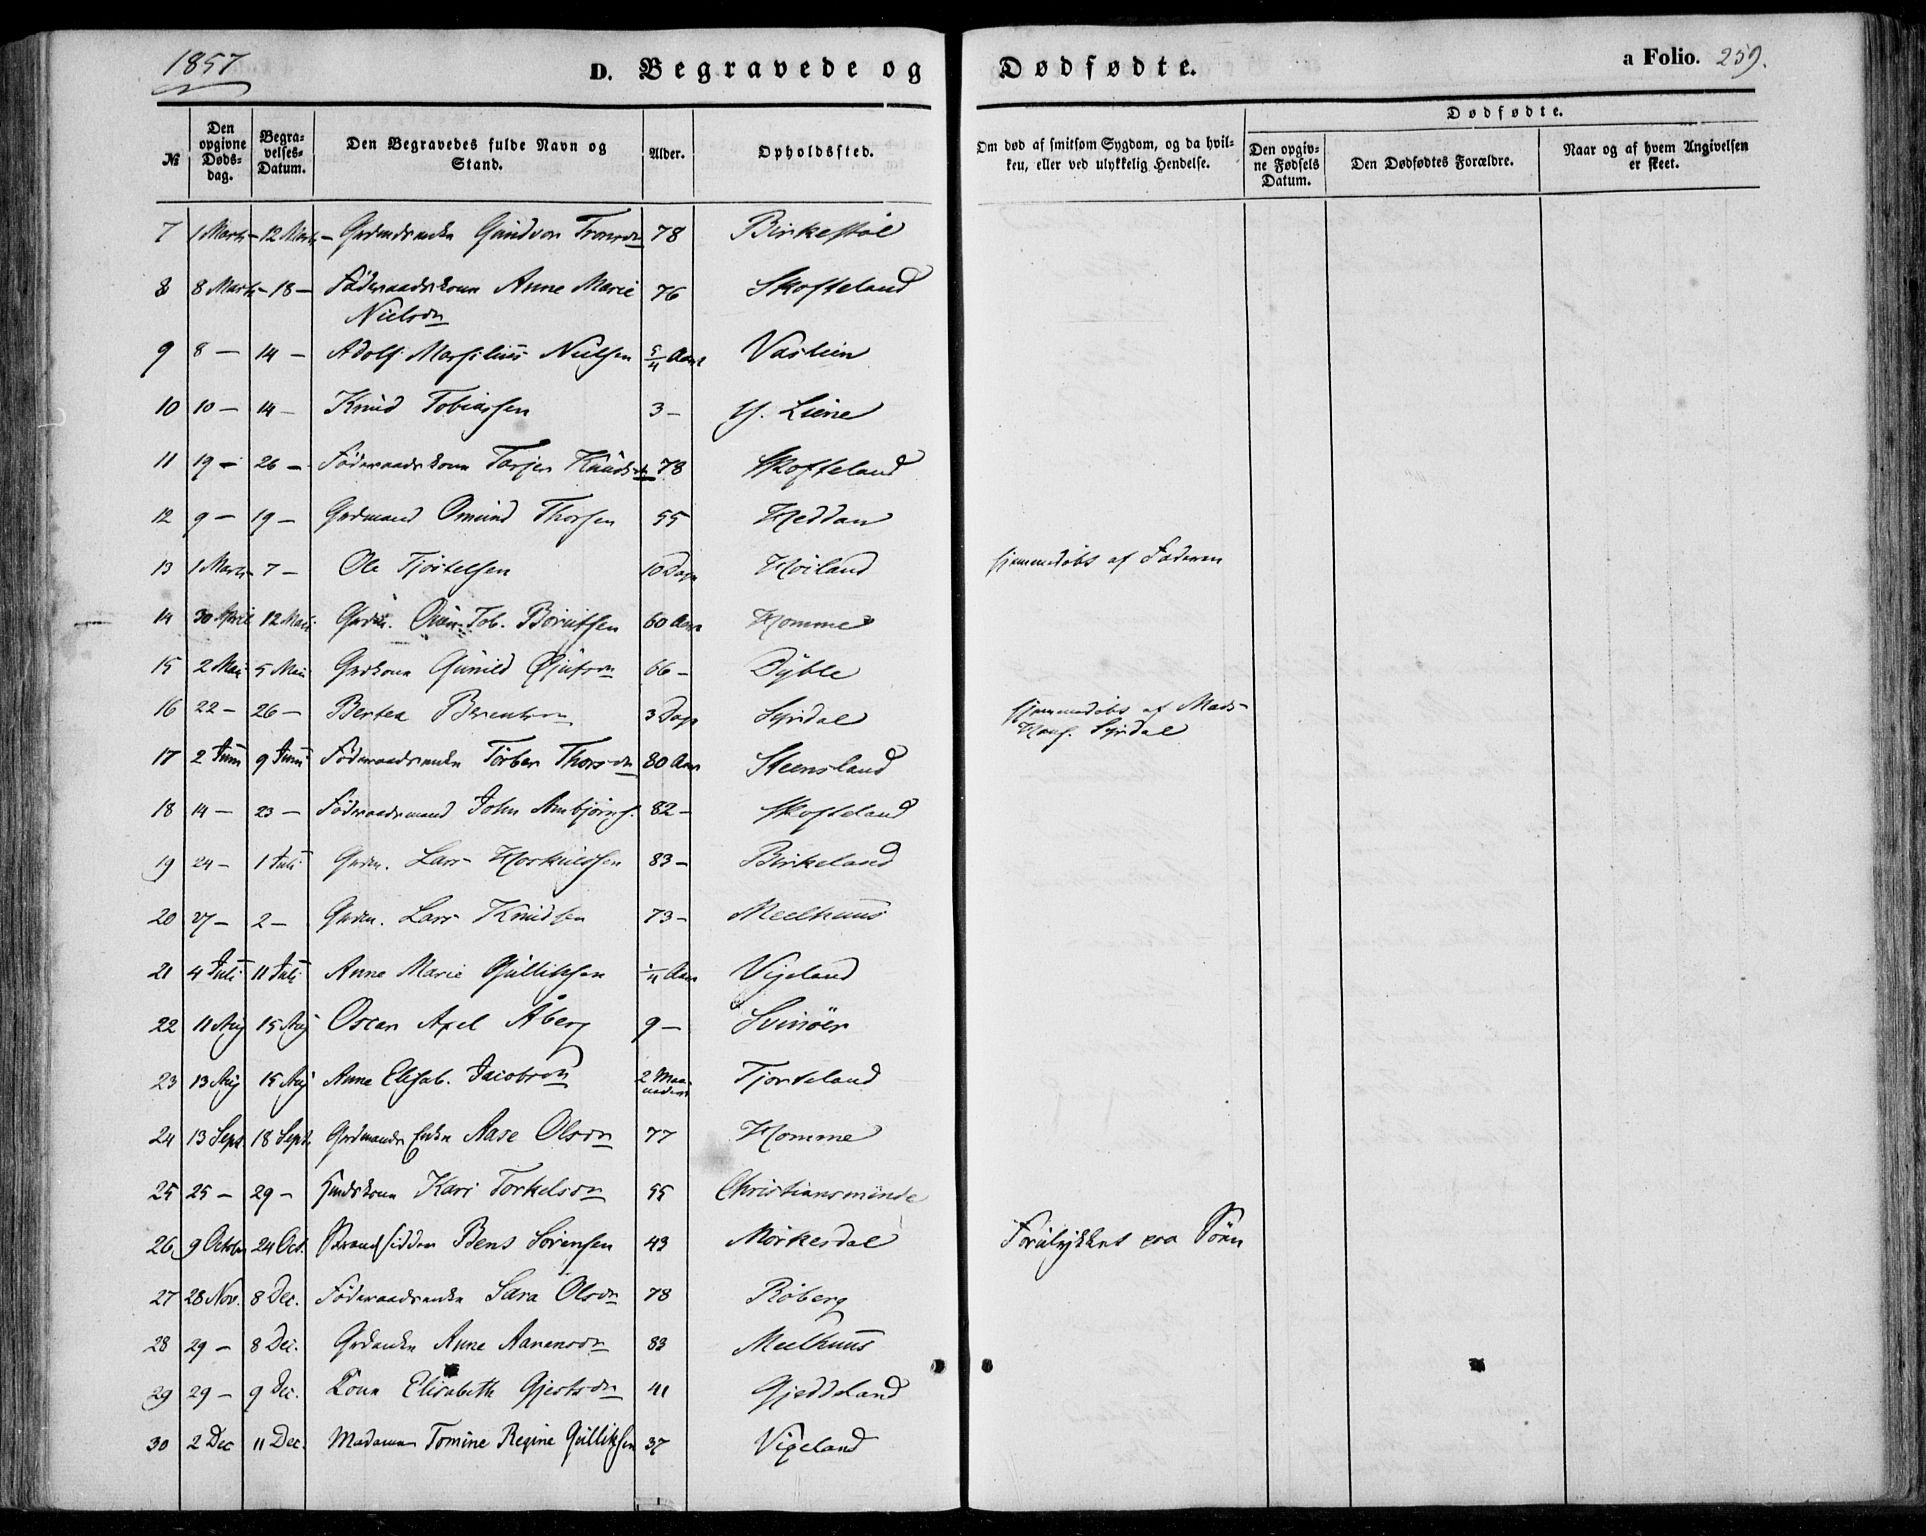 1857
D. Begravede og Dødfødte.
a Folio. 259.
№
Den opgivne Døds-dag.
Begra-velses-Datum.
Den Begravedes fulde Navn og Stand.
Alder.
Opholdssted.
Om død af smitsom Sygdom, og da hvil-ken, eller ved ulykkelig Hendelse.
Dødfødte.
Den opgiv-ne Fødsels Datum.
Den Dødfødtes Forældre.
Naar og af hvem Angivelsen er skeet.
7 1 Marts 12 Marts Gundvor Tronsdn 78 Birkestøl
8 8 Marts - 18 - Føderaadskone Anne Marie 76 Skofteland
Nielsdn
9 8 - 14 - Adolf Nielsen 5/4 Aar Vaslien
10 10 - 14 - Knud Tobiassen 3 - Y. Liene
11 19 - 26 - Føderaadskone Torjer Knudsdn 78 Skofteland
12 9 - 19 - Grdmand Omund Thorsen 55 Heddan
13 1 Marts 7 - Ole 10 Dage Høiland hjemmedøbt af Faderen
14 30 April 12 Mai Tob. Berintsen 60 Aar Homme
15 2 Mai 5 Mai Grdkone Gunild 66 - Dyble
16 22 - 26 - Bertea Berentsdn 3 Dage Syrdal hjemmedøbt af Mads
Hans. Syrdal
17 2 Juni 9 Juni Føderaadsenke Torber Thorsdn 80 Aar Steensland
18 14 - 23 - Føderaadsmand John Anbjørns. 82 - Skofteland
19 24 - 1 Juli Lars 83 - Birkeland
20 27 - 2 - Lars Knudsen 73 - Meelhuus
21 4 Juli 11 Juli Anne Marie Gulliksen 1/4 Aar Vigeland
22 11 Aug 15 Aug Oscar Axel Åberg 9 - Svinöer
23 13 Aug 15 Aug Anne Elisab. Jacobsdn 2 Maa-neder Tjorteland
24 13 Sept 18 Sept. Grdmands Enke Aase Olsdn 77 Homme
25 25 - 29 - Kari Torkelsdn 55 Christiansminde
26 9 Octobr 24 Oct. Strandsidder Bens Sørensen 43 Mørkesdal Forulykket paa Søen
27 28 Nov. 8 Dec. Føderaadsenke Sara Olsdn 78 Röberg
28 29 - 8 Dec. Grdenke Anne Aanensdn 83 Meelhuus
29 29 - 9 Dec. Kone Elisabeth Gjertsdn 41 Gjeddeland
30 2 Dec 11 Dec. Madame Tomine Regine Gulliksen 37 Vigeland